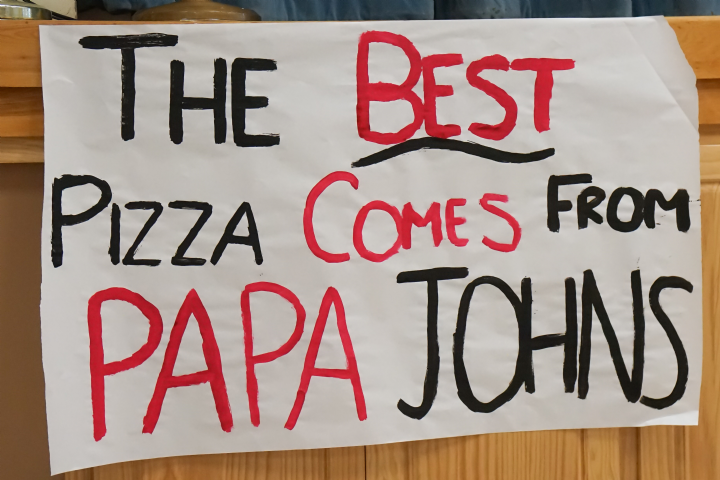 THE BEST
PIZZA COMES FROM
PAPA JOHNS